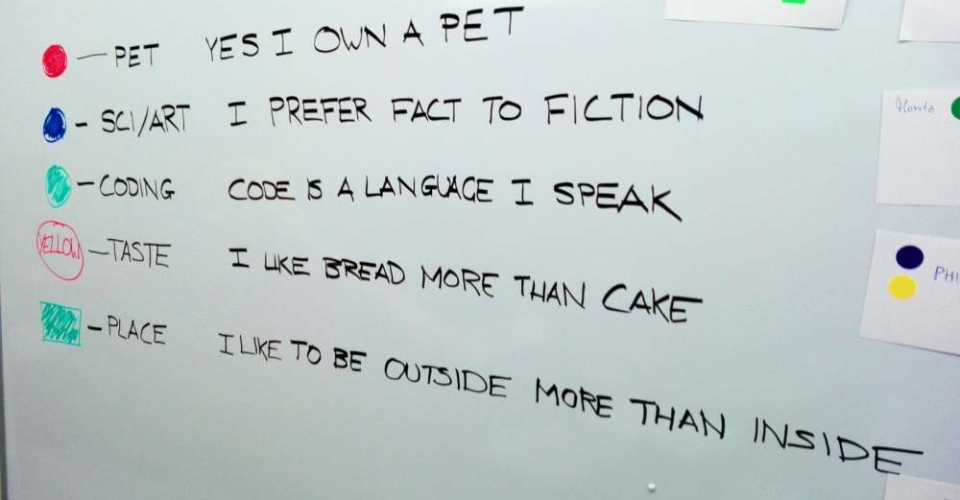 PET YES I OWN A PET
SCI/ART I PREFER FACT TO FICTION
CODING CODE IS A LANGUAGE I SPEAK
YELLOW TASTE I LIKE BREAD MORE THAN CAKE
PLACE I LIKE TO BE OUTSIDE MORE THAN INSIDE
PHI